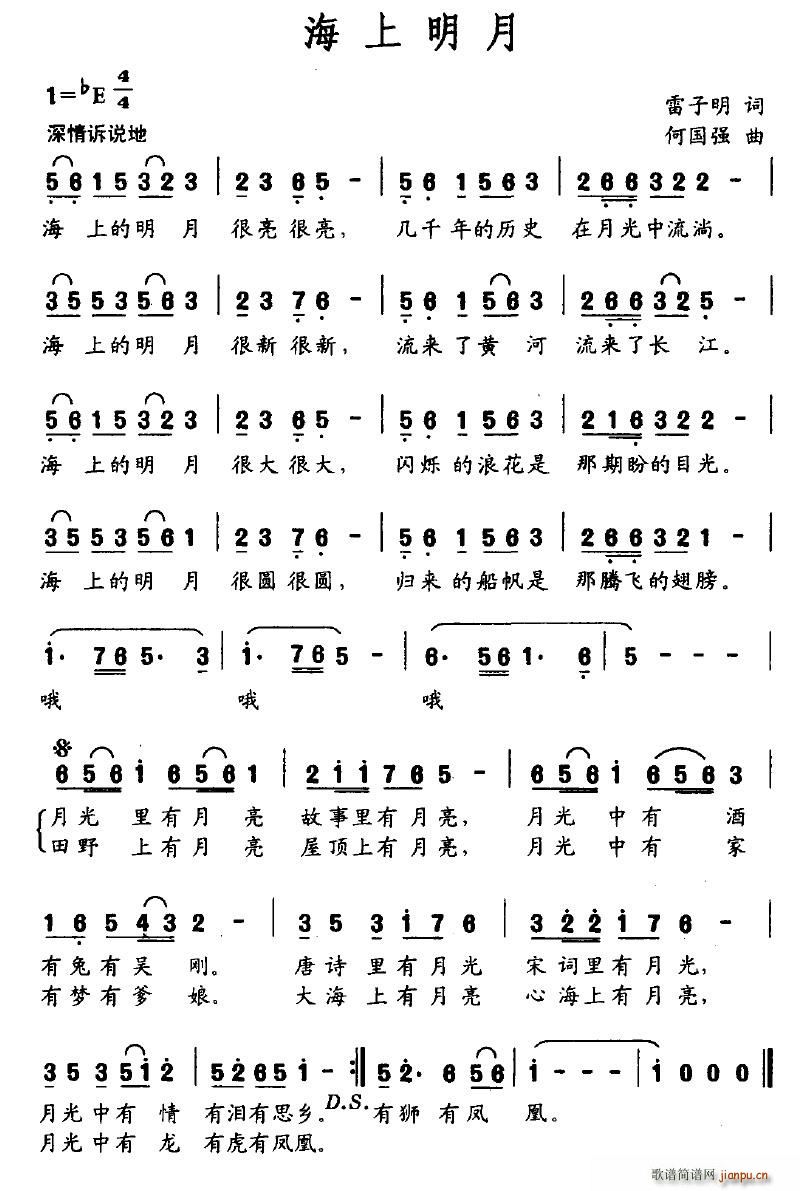 海上明月
1=♭E 4/4
雷子明 词
深情诉说地
何国强 曲
5 6 1 5 3 2 3 | 2 3 6 5 - | 5 6 1 5 6 3 | 2 6 6 3 2 2 - |
海 上的明 月 很亮很亮， 几千年的历史 在月光中流淌。
3 5 5 3 5 6 3 | 2 3 7 6 - | 5 6 1 5 6 3 | 2 6 6 3 2 5 - |
海 上的明 月 很新很新， 流来了黄 河 流来了长 江。
5 6 1 5 3 2 3 | 2 3 6 5 - | 5 6 1 5 6 3 | 2 1 6 3 2 2 - |
海 上的明 月 很大很大， 闪烁的浪花是 那期盼的目光。
3 5 5 3 5 6 1 | 2 3 7 6 - | 5 6 1 5 6 3 | 2 6 6 3 2 1 - |
海 上的明 月 很圆很圆， 归来的船帆是 那腾飞的翅膀。
i· 7 6 5· 3 | i· 7 6 5 - | 6· 5 6 1· 6 | 5 - - - |
哦 哦 哦
6 5 6 i 6 5 6 1 | 2 i i 7 6 5 - | 6 5 6 i 6 5 6 3 |
月光 里有月 亮 故事里有月亮， 月光 中有 酒
田野 上有月 亮 屋顶上有月亮， 月光 中有 家
1 6 5 4 3 2 - | 3 5 3 i 7 6 6 | 3 2 2 i 7 6 - |
有兔有吴 刚。 唐诗里有月光 宋词里有月光，
有梦有爹 娘。 大海上有月亮 心海上有月亮，
3 5 3 5 i 2 | 5 2 6 5 i - :| 5 2· 6 5 6 | i - - - | i 0 0 0 ||
月光中有 情 有泪有思乡。 D.S. 有狮 有凤 凰。
月光中有 龙 有虎有凤凰。
歌谱简谱网
jianpu.cn